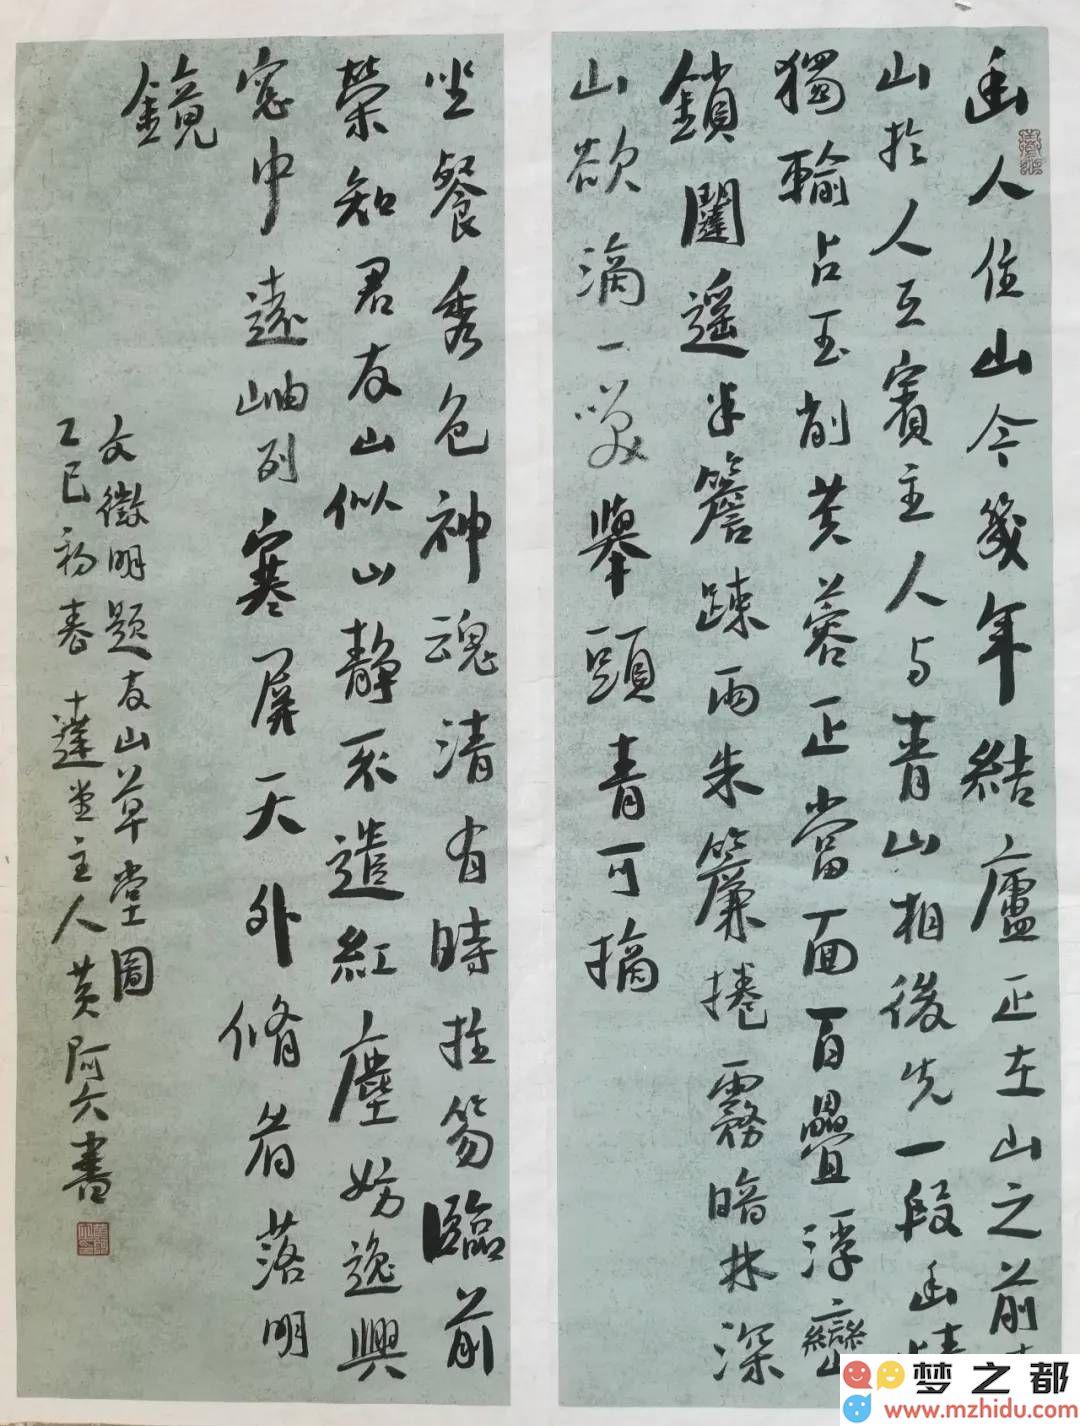 幽人住山今幾年結廬正在山之前
山於人互賓主人与青山相後先一段幽情
獨輸占玉削芙蓉正當面百疊浮巒
鎖闥遥半簷疎雨朱簾捲霧暗林深
山欲滴一笑舉頭青可摘
坐餐秀色神魂清有時拄笏臨前
榮知君友山似山静不遣紅塵妨逸興
窓中遠岫列寒屏天外脩眉落明
鏡
文徵明題友山草堂圖
乙巳初春 十蓮堂主人黄阿六書
梦之都
www.mzhidu.com